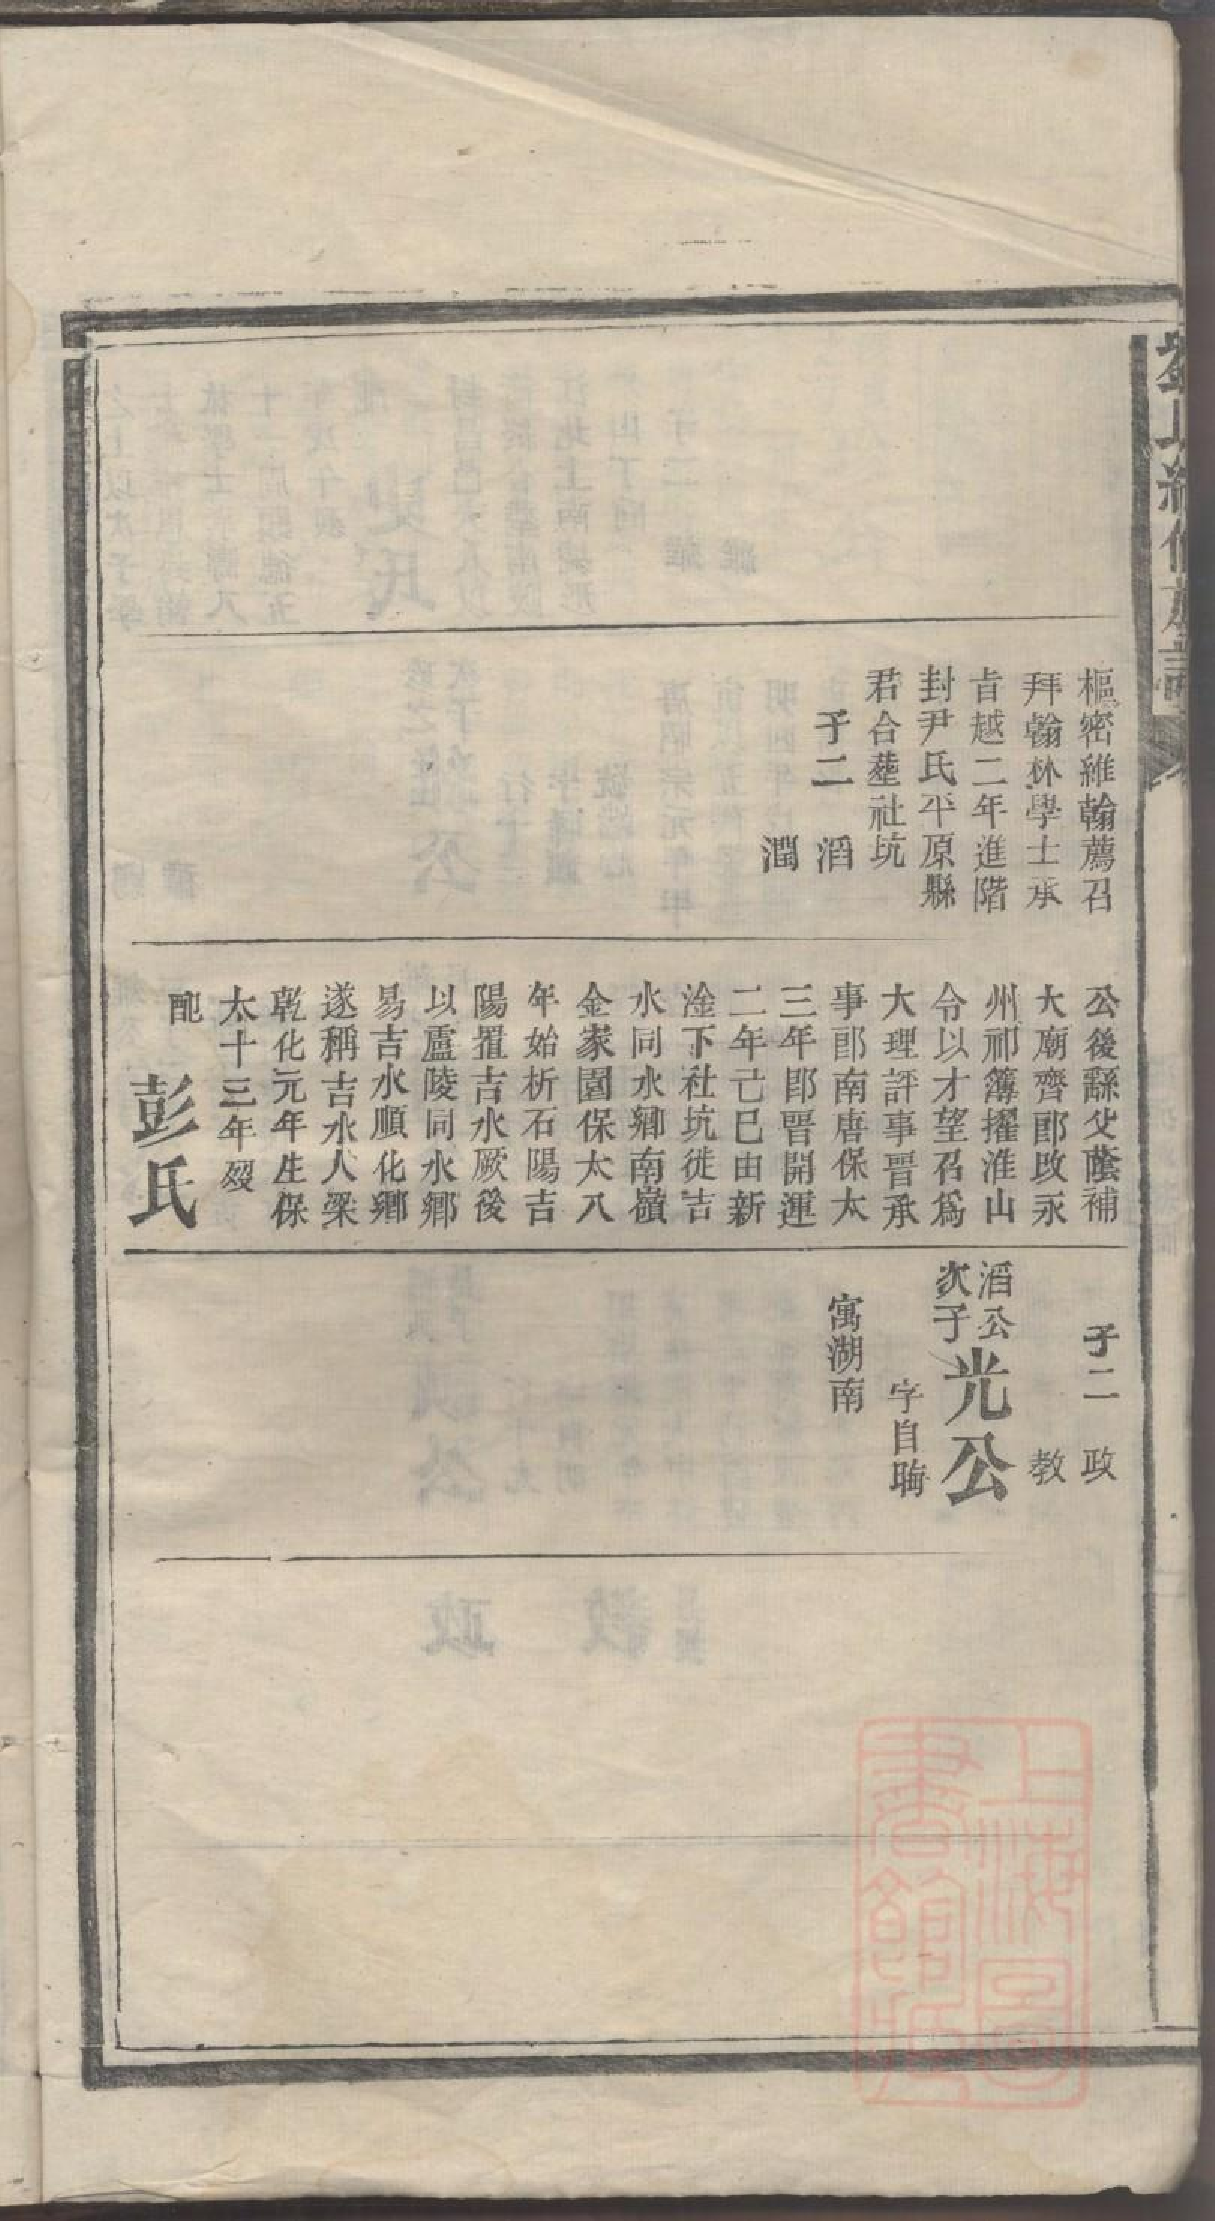 樞密維翰薦召
拜翰林學士承
旨越二年進階
封尹氏平原縣
君合塟社坑
子二 滔
潤
公後繇父蔭補
大廟齊郎改永
州祁簿擢淮山
令以才望召爲
大理評事晋承
事郎南唐保太
三年卽晋開運
二年己巳由新
淦下社坑徙吉
水同水鄉南嶺
金家園保太八
年始析石陽吉
陽置吉水厥後
以廬陵同水鄉
易吉水順化鄉
遂稱吉水人梁
乾化元年生保
太十三年歿
配 彭氏
子二 政
教
滔公次子光公
字自晦
寓湖南
上海圖書館藏